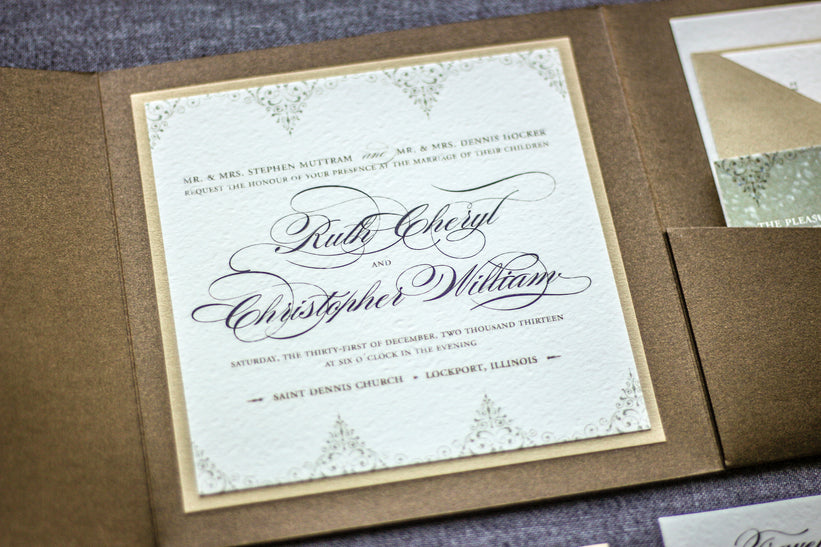 MR. & MRS. STEPHEN MUTTRAM and MR. & MRS. DENNIS HOCKER
REQUEST THE HONOUR OF YOUR PRESENCE AT THE MARRIAGE OF THEIR CHILDREN
Ruth Cheryl
AND
Christopher William
SATURDAY, THE THIRTY-FIRST OF DECEMBER, TWO THOUSAND THIRTEEN
AT SIX O'CLOCK IN THE EVENING
SAINT DENNIS CHURCH • LOCKPORT, ILLINOIS
THE PLEASU